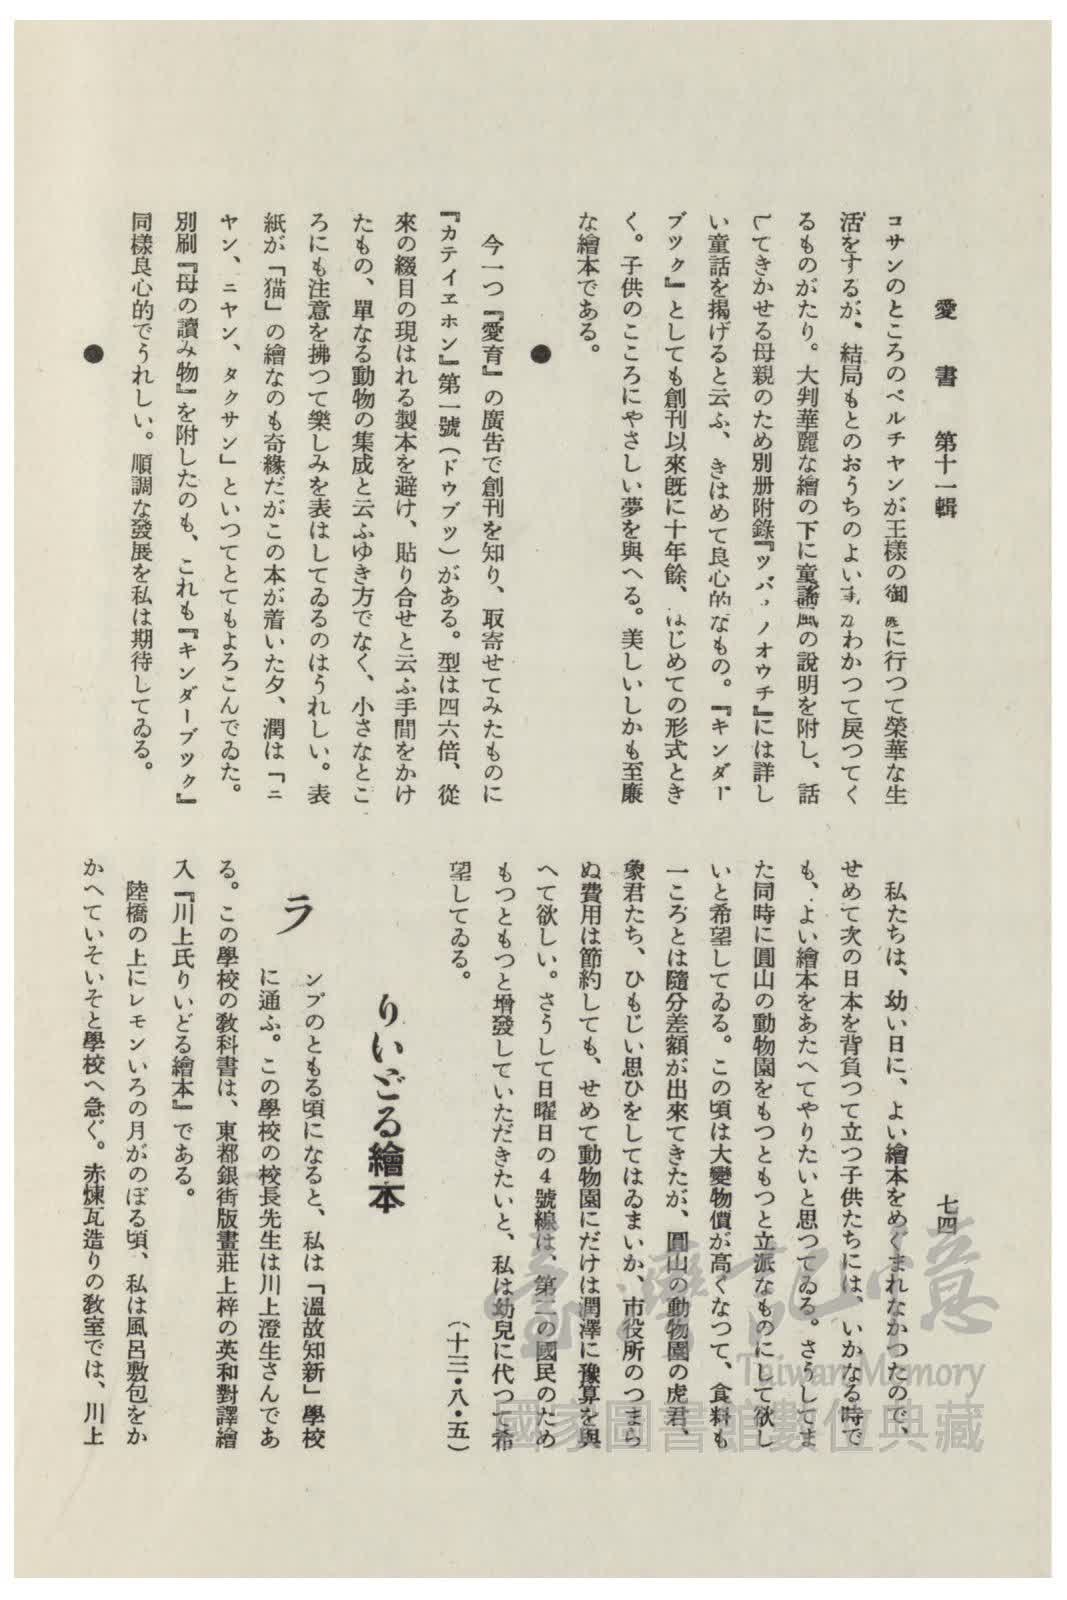 愛書 第十一輯
コサンのところのペルチヤンが王様の御 に行つて榮華な生
活をするが、結局もとのおうちのよい わかつて戻つてく
るものがたり。大判華麗な繪の下に童謠風の說明を附し、話
してきかせる母親のため別册附錄『ツバ ノオウチ』には詳し
い童話を揭げると云ふ、きはめて良心的なもの。『キンダー
ブツク』としても創刊以來旣に十年餘、はじめての形式とき
く。子供のこころにやさしい夢を與へる。美しいしかも至廉
な繪本である。
●
今一つ『愛育』の廣告で創刊を知り、取寄せてみたものに
『カテイヱホン』第一號(ドウブツ)がある。型は四六倍、從
來の綴目の現はれる製本を避け、貼り合せと云ふ手間をかけ
たもの、單なる動物の集成と云ふゆき方でなく、小さなとこ
ろにも注意を拂つて樂しみを表はしてゐるのはうれしい。表
紙が「猫」の繪なのも奇緣だがこの本が着いた夕、潤は「ニ
ヤン、ニヤン、タクサン」といつてとてもよろこんでゐた。
別刷『母の讀み物』を附したのも、これも『キンダーブツク』
同樣良心的でうれしい。順調な發展を私は期待してゐる。
●
七四
私たちは、幼い日に、よい繪本をめぐまれなかつたので、
せめて次の日本を背負つて立つ子供たちには、いかなる時で
も、よい繪本をあたへてやりたいと思つてゐる。さうしてま
た同時に圓山の動物園をもつともつと立派なものにして欲し
いと希望してゐる。この頃は大變物價が高くなつて、食料も
一ころとは隨分差額が出來てきたが、圓山の動物園の虎君、
象君たち、ひもじい思ひをしてはゐまいか、市役所のつまら
ぬ費用は節約しても、せめて動物園にだけは潤澤に豫算を與
へて欲しい。さうして日曜日の4號線は、第二の國民のため
もつともつと增發していただきたいと、私は幼兒に代つて希
望してゐる。
(十三・八・五)
りいどる繪本
ランプのともる頃になると、私は「溫故知新」學校
に通ふ。この學校の校長先生は川上澄生さんであ
る。この學校の敎科書は、東都銀街版畫莊上梓の英和對譯繪
入『川上氏りいどる繪本』である。
陸橋の上にレモンいろの月がのぼる頃、私は風呂敷包をか
かへていそいそと學校へ急ぐ。赤煉瓦造りの敎室では、川上
臺灣記憶
Taiwan Memory
國家圖書館數位典藏